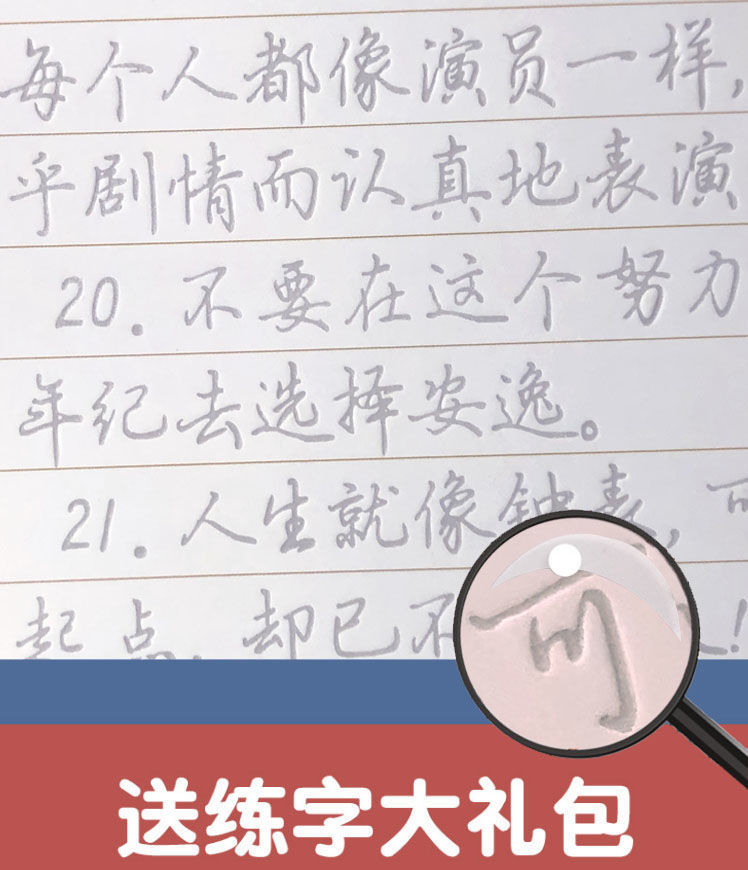 每个人都像演员一样,
乎剧情而认真地表演
20. 不要在这个努力
年纪去选择安逸。
21. 人生就像钟表, 可
起点, 却已不
可
送练字大礼包